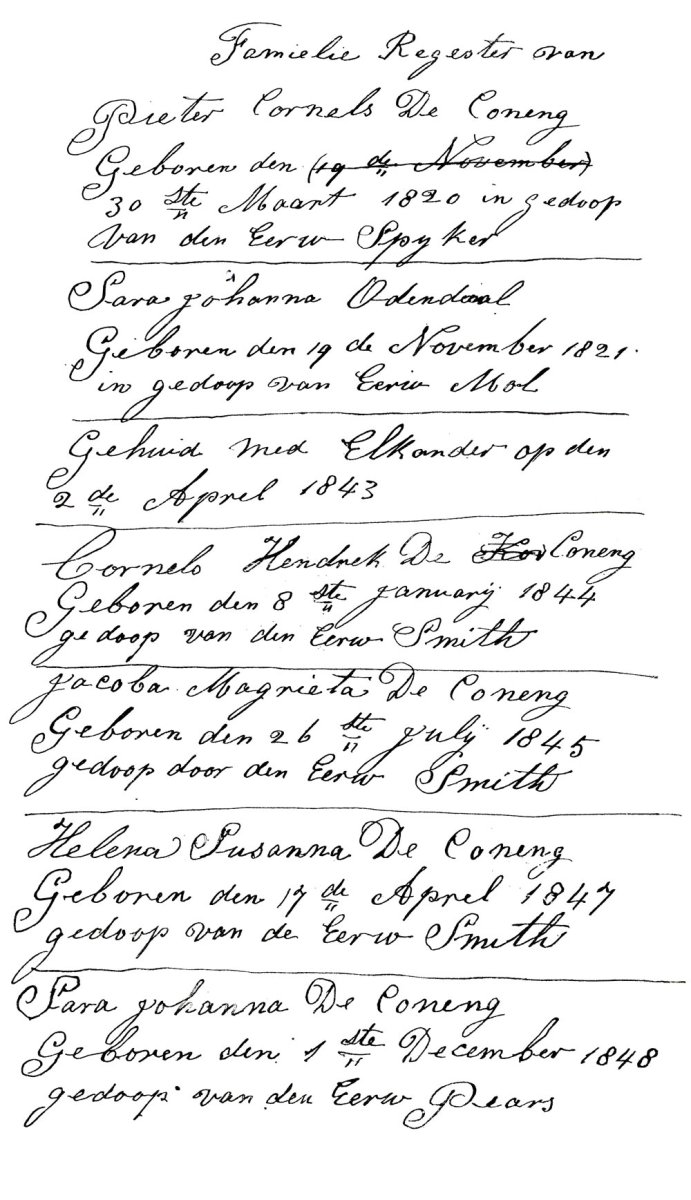 Famielie Regester van
Pieter Cornels De Coneng
Geboren den (19 de November)
30 ste Maart 1820 in gedoop
van den Eerw Spyker
Sara johanna Odendaal
Geboren den 19 de November 1821.
in gedoop van Eerw Mol
Gehuid med Elkander op den
2 de Aprel 1843
Cornels Hendrek De Coneng
Geboren den 8 ste januarij 1844
gedoop van den Eerw Smith
jacoba Magrieta De Coneng
Geboren den 26 ste july 1845
gedoop door den Eerw Smith
Helena Susanna De Coneng
Geboren den 17 de Aprel 1847
gedoop van de Eerw Smith
Sara johanna De Coneng
Geboren den 1 ste December 1848
gedoop van den Eerw Pears